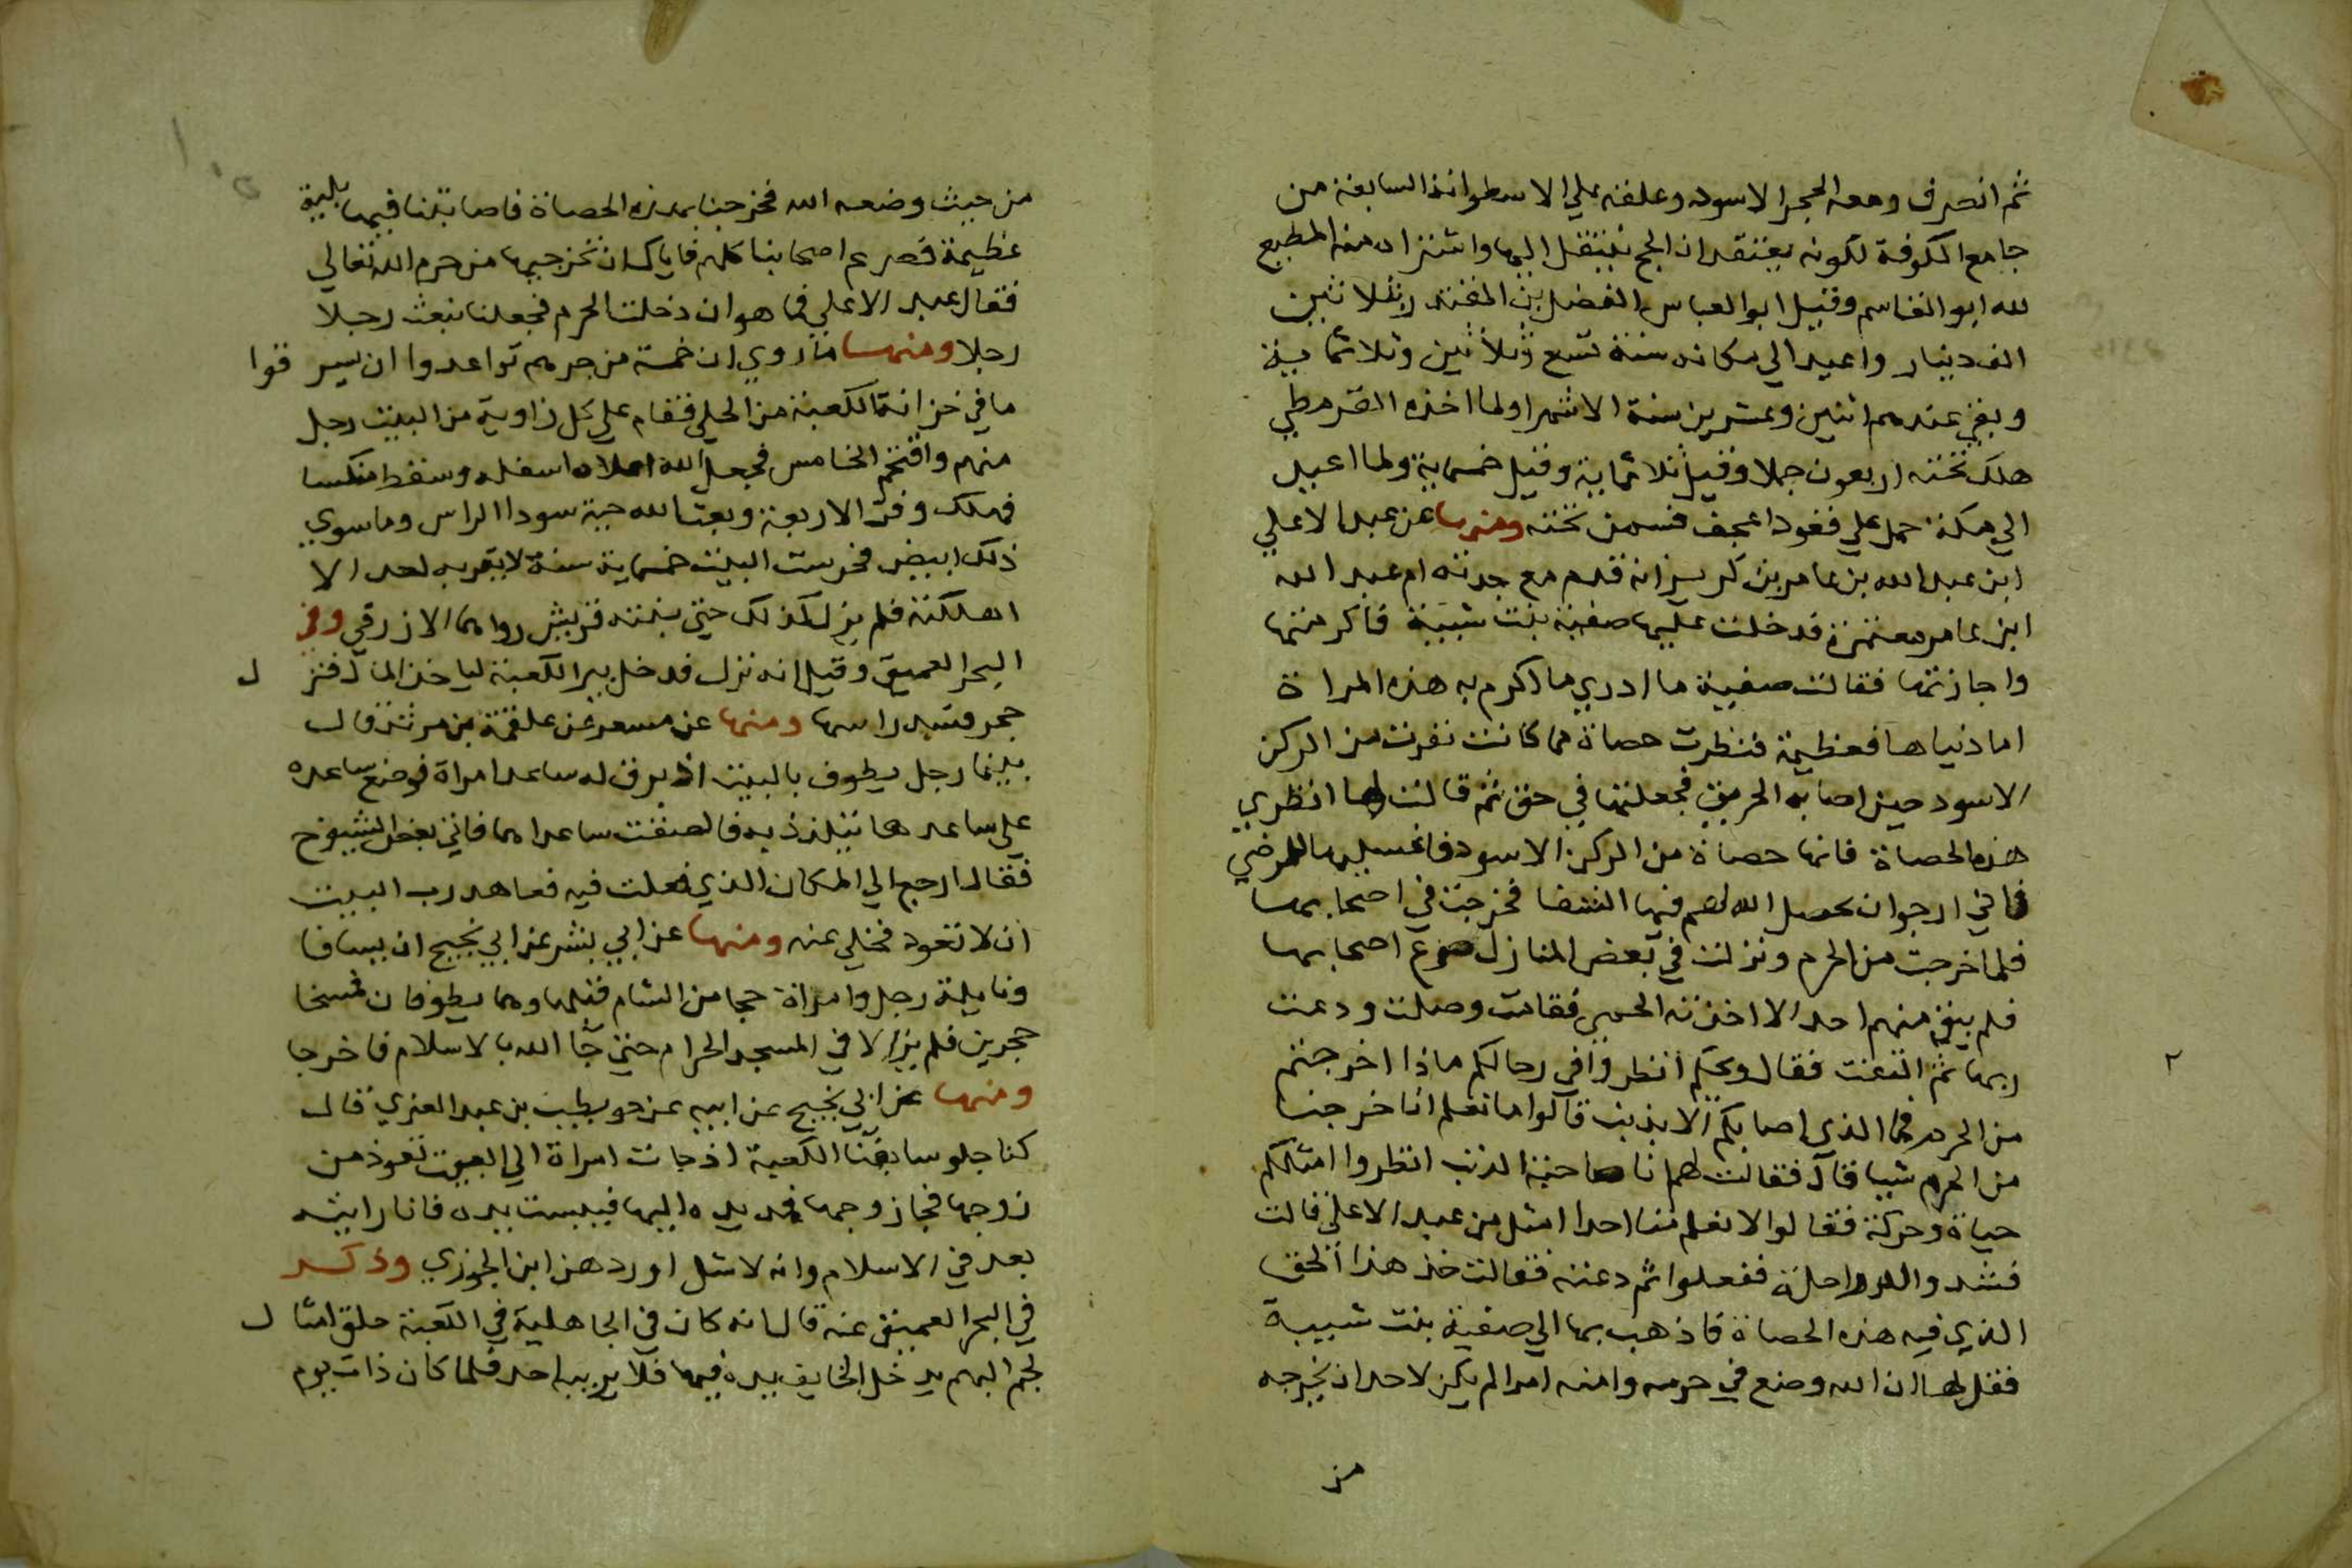 ثم انصرف ومعه الحجر الاسود وعلقه علي الاسطوانة السابعة من
جامع الكوفة لكونه يعتقد ان الحج ينتقل اليها واشتراه منه المطيع
لله ابو القاسم وقيل ابو العباس الفضل بن المقتدر بثلاثين
الف دينار واعيد الي مكانه سنة تسع وثلاثين وثلاثماية
وبقي عندهم اثنين وعشرين سنة الا شهرا ولما اخذه القرمطي
هلك تحته اربعون جملا وقيل ثلاثماية وقيل خمسماية ولما اعيد
الي مكة حمل علي قعود اعجف فسمن تحته ومنها عن عبد الاعلي
ابن عبد الله بن عامر بن كريز انه قدم مع جدته ام عبد الله
ابن عامر معتمرة فدخلت عليها صفية بنت شيبة فاكرمتها
واجازتها فقالت صفية ما ادري ما اكرم به هذه المراة
اما دنياها فعظيمة فنظرت حصاة مما كانت نقرت من الركن
الاسود حين اصابه الحريق فجعلتها في حق ثم قالت لها انظري
هذه الحصاة فانها حصاة من الركن الاسود فاغسليها للمرضي
فاني ارجوان يحصل الله لهم فيها الشفا فخرجت في اصحابها
فلما خرجت من الحرم ونزلت في بعض المنازل صرع اصحابها
فلم يبق منهم احد الا اخذته الحمي فقامت وصلت ودعت
ربها ثم التفتت فقال ويحكم انظروا في رحالكم ماذا اخرجتم
من الحرم فما الذي اصابكم الا بذنب قالوا ما نعلم انا خرجنا
من الحرم شيا قال فقالت لهم انا صاحبة الذنب انظروا امثلكم
حياة وحركة فقالوا لا نعلم منا احدا امثل من عبد الاعلي قالت
فشدوا له راحلة ففعلوا ثم دعته فقالت خذ هذا الحق
الذي فيه هذه الحصاة فاذهب بها الي صفية بنت شيبة
فقل لها ان الله وضع في حرمه وامنه امرا لم يكن لاحد ان يخرجه
من
من حيث وضعه الله فخرجنا بهذه الحصاة فاصابتنا فيها بلية
عظيمة فصرع اصحابنا كلهم فاياك ان تخرجيها من حرم الله تعالي
فقال عبد الاعلي فما هو ان دخلت الحرم فجعلنا نبعث رجلا
رجلا ومنها ما روي ان خمسة من جرهم تواعدوا ان يسرقوا
ما في خزانة الكعبة من الحلي فقام علي كل زاوية من البيت رجل
منهم واقتحم الخامس فجعل الله اعلاه اسفله وسقط منكسا
فهلك وفر الاربعة وبعث الله حية سودا الراس وما سوي
ذلك ابيض فحرست البيت خمسماية سنة لا يقربه احد الا
اهلكته فلم يزل كذلك حتي بنته قريش رواهما الازرقي وفي
البحر العميق وقيل انه نزل فدخل بير الكعبة لياخذ المال فنزل
حجر فشد راسها ومنها عن مسعر عن علقمة بن مرثد قال
بينما رجل يطوف بالبيت اذ برق له ساعد امراة فوضع ساعده
علي ساعدها يتلذذ به فالصقت ساعداهما فاتي بعض الشيوخ
فقال ارجع الي المكان الذي فعلت فيه فعاهد رب البيت
ان لا تعود فخلي عنه ومنها عن ابي بشر عن ابي نجيح ان يسافا
ونايلة رجل وامراة حجا من الشام فقبلها وهما يطوفان فمسخا
حجرين فلم يزالا في المسجد الحرام حتي جا الله بالاسلام فاخرجا
ومنها عن ابي نجيح عن ابيه عن حويطب بن عبد العزي قال
كنا جلوسا بفنا الكعبة اذ جات امراة الي البيت تعوذ من
زوجها فجا زوجها فمد يده اليها فيبست يده فانا رايته
بعد في الاسلام وانه لاشل اورد هن ابن الجوزي وذكر
في البحر العميق عنه قال انه كان في الجاهلية في الكعبة حلق امثال
لجم البهم يدخل الخايف يده فيها فلا يريبه احد فلما كان ذات يوم